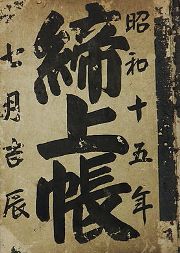 昭和十五年
締上帳
七月吉辰